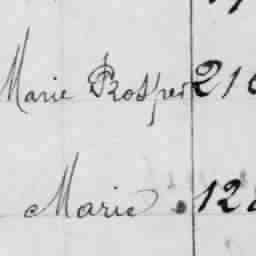 Marie Prosper 21
Marie 12